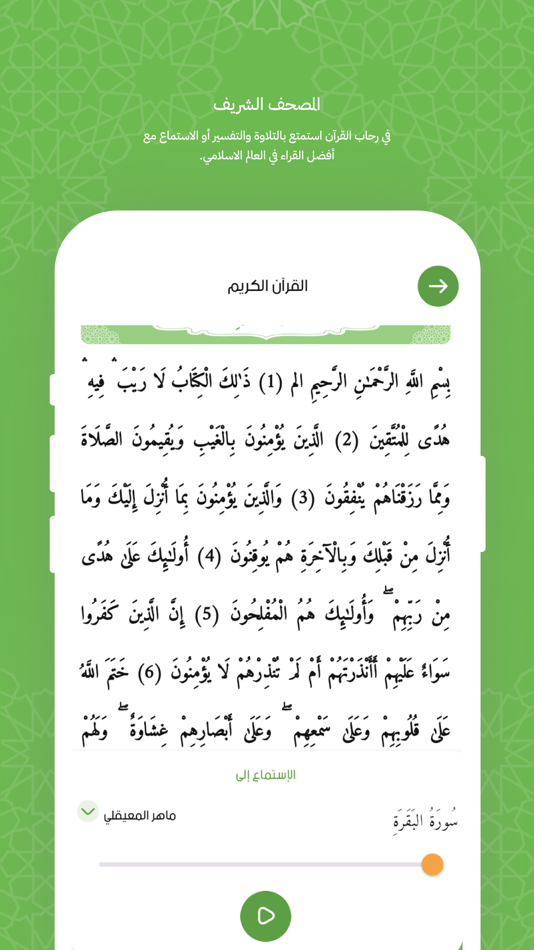 المصحف الشريف
في رحاب القرآن استمتع بالتلاوة والتفسير أو الاستماع مع
أفضل القراء في العالم الاسلامي.
القرآن الكريم
بِسْمِ اللَّهِ الرَّحْمَٰنِ الرَّحِيمِ الم (1) ذَٰلِكَ الْكِتَابُ لَا رَيْبَ ۛ فِيهِ ۛ
هُدًى لِلْمُتَّقِينَ (2) الَّذِينَ يُؤْمِنُونَ بِالْغَيْبِ وَيُقِيمُونَ الصَّلَاةَ
وَمِمَّا رَزَقْنَاهُمْ يُنْفِقُونَ (3) وَالَّذِينَ يُؤْمِنُونَ بِمَا أُنْزِلَ إِلَيْكَ وَمَا
أُنْزِلَ مِنْ قَبْلِكَ وَبِالْآخِرَةِ هُمْ يُوقِنُونَ (4) أُولَٰئِكَ عَلَىٰ هُدًى
مِنْ رَبِّهِمْ ۖ وَأُولَٰئِكَ هُمُ الْمُفْلِحُونَ (5) إِنَّ الَّذِينَ كَفَرُوا
سَوَاءٌ عَلَيْهِمْ أَأَنْذَرْتَهُمْ أَمْ لَمْ تُنْذِرْهُمْ لَا يُؤْمِنُونَ (6) خَتَمَ اللَّهُ
عَلَىٰ قُلُوبِهِمْ وَعَلَىٰ سَمْعِهِمْ ۖ وَعَلَىٰ أَبْصَارِهِمْ غِشَاوَةٌ ۖ وَلَهُمْ
الإستماع إلى
سُورَةُ البَقَرَةِ
ماهر المعيقلي